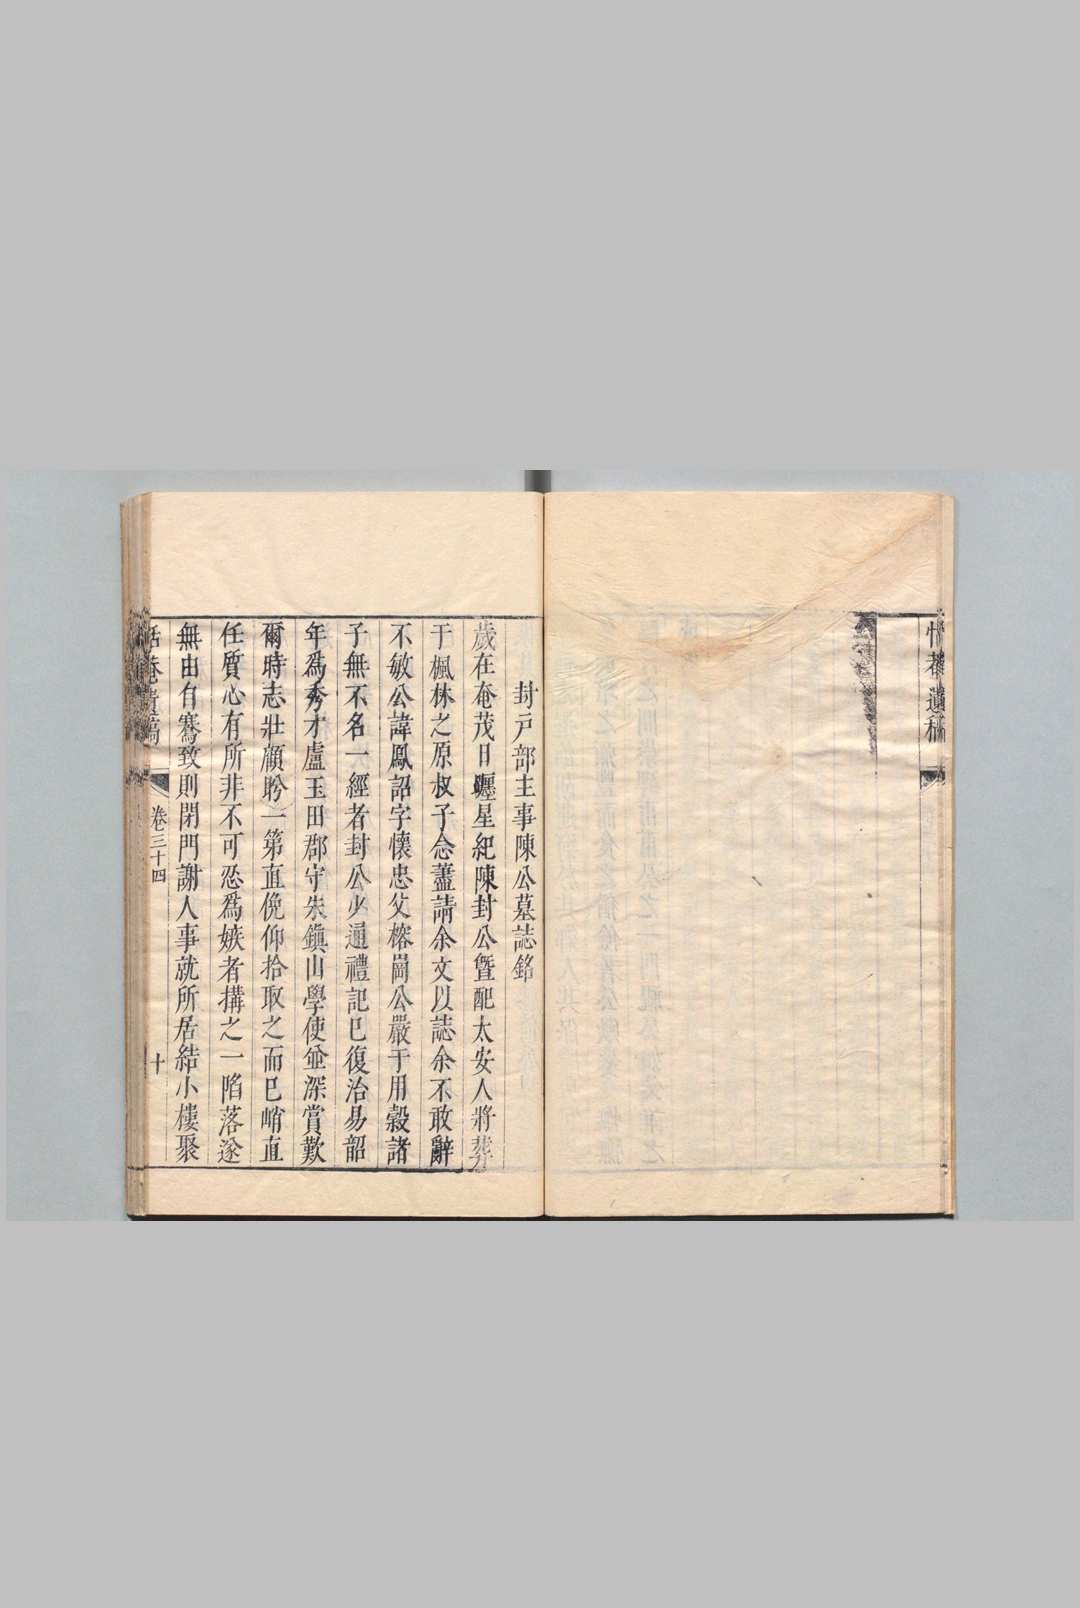 遺稿
封戶部主事陳公墓誌銘
歲在奄茂日躔星紀陳封公暨配太安人將葬
于楓林之原叔子念藎請余文以誌余不敢辭
不敏公諱鳳詔字懷忠父榕崗公嚴于用穀諸
子無不名一經者封公少通禮記已復治易韶
年爲秀才盧玉田郡守朱鎮山學使並深賞歎
爾時志壯顧盻一第直俛仰拾取之而已峭直
任質心有所非不可忍爲嫉者搆之一陷落遂
無由自騫致則閉門謝人事就所居結小樓聚
恬菴遺稿
卷三十四
十